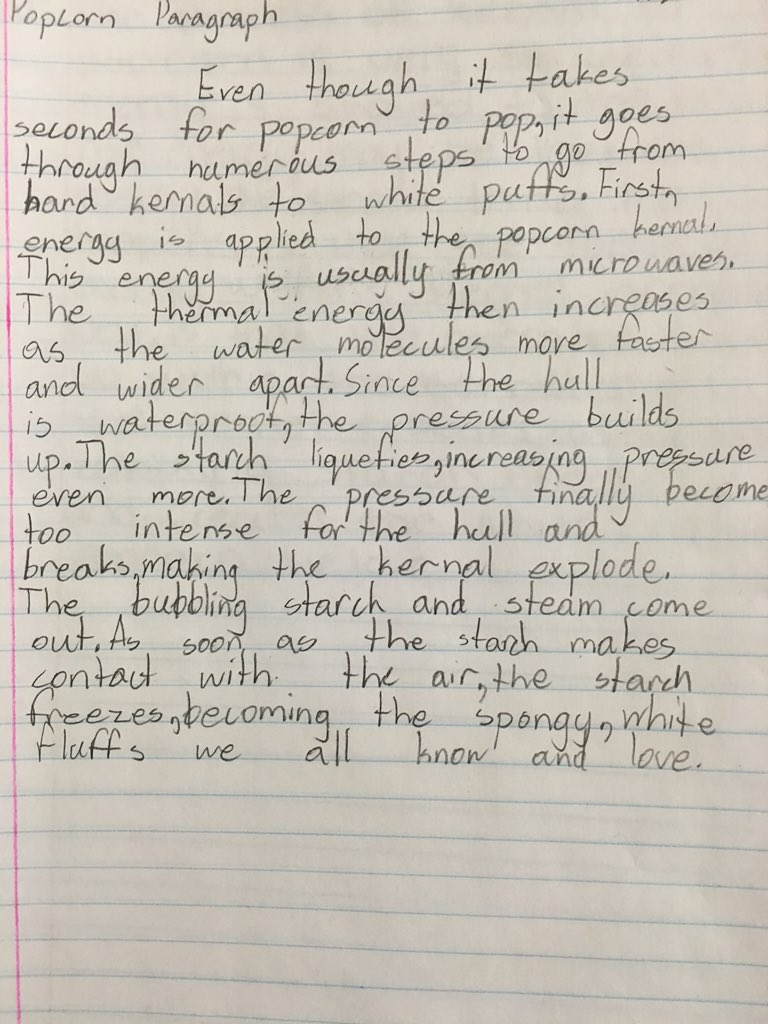 Popcorn Paragraph
Even though it takes
seconds for popcorn to pop, it goes
through numerous steps to go from
hard kernals to white puffs. First,
energy is applied to the popcorn kernal.
This energy is usually from microwaves.
The thermal energy then increases
as the water molecules move faster
and wider apart. Since the hull
is waterproof, the pressure builds
up. The starch liquefies, increasing pressure
even more. The pressure finally become
too intense for the hull and
breaks, making the kernal explode.
The bubbling starch and steam come
out. As soon as the starch makes
contact with the air, the starch
freezes, becoming the spongy, white
fluffs we all know and love.